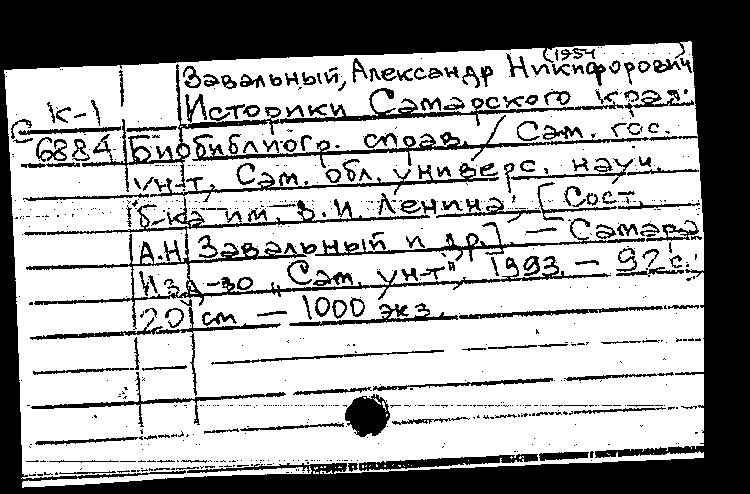 (1954 )
Завальный, Александр Никифорович
К-1 Историки Самарского края:
С 6884 Биобиблиогр. справ. / Сам. гос.
ун-т, Сам. обл. универс. науч.
б-ка им. В.И. Ленина; [Сост.
А.Н. Завальный и др.]. — Самара
Изд-во „Сам. ун-т", 1993. — 92 с.;
20 cm. — 1000 экз.